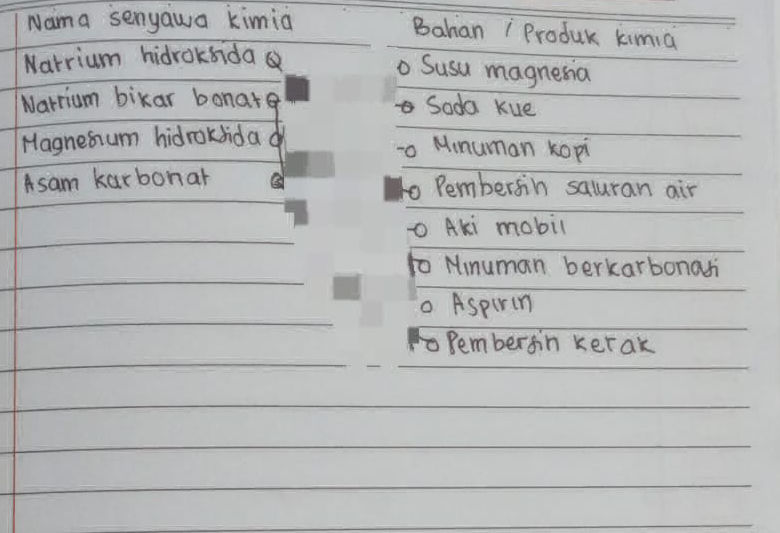 Nama senyawa kimia
Natrium hidroksida
Natrium bikar bonat
Magnesium hidroksida
Asam karbonat
Bahan / Produk kimia
Susu magnesia
Soda kue
Minuman kopi
Pembersih saluran air
Aki mobil
Minuman berkarbonasi
Aspirin
Pembersih kerak